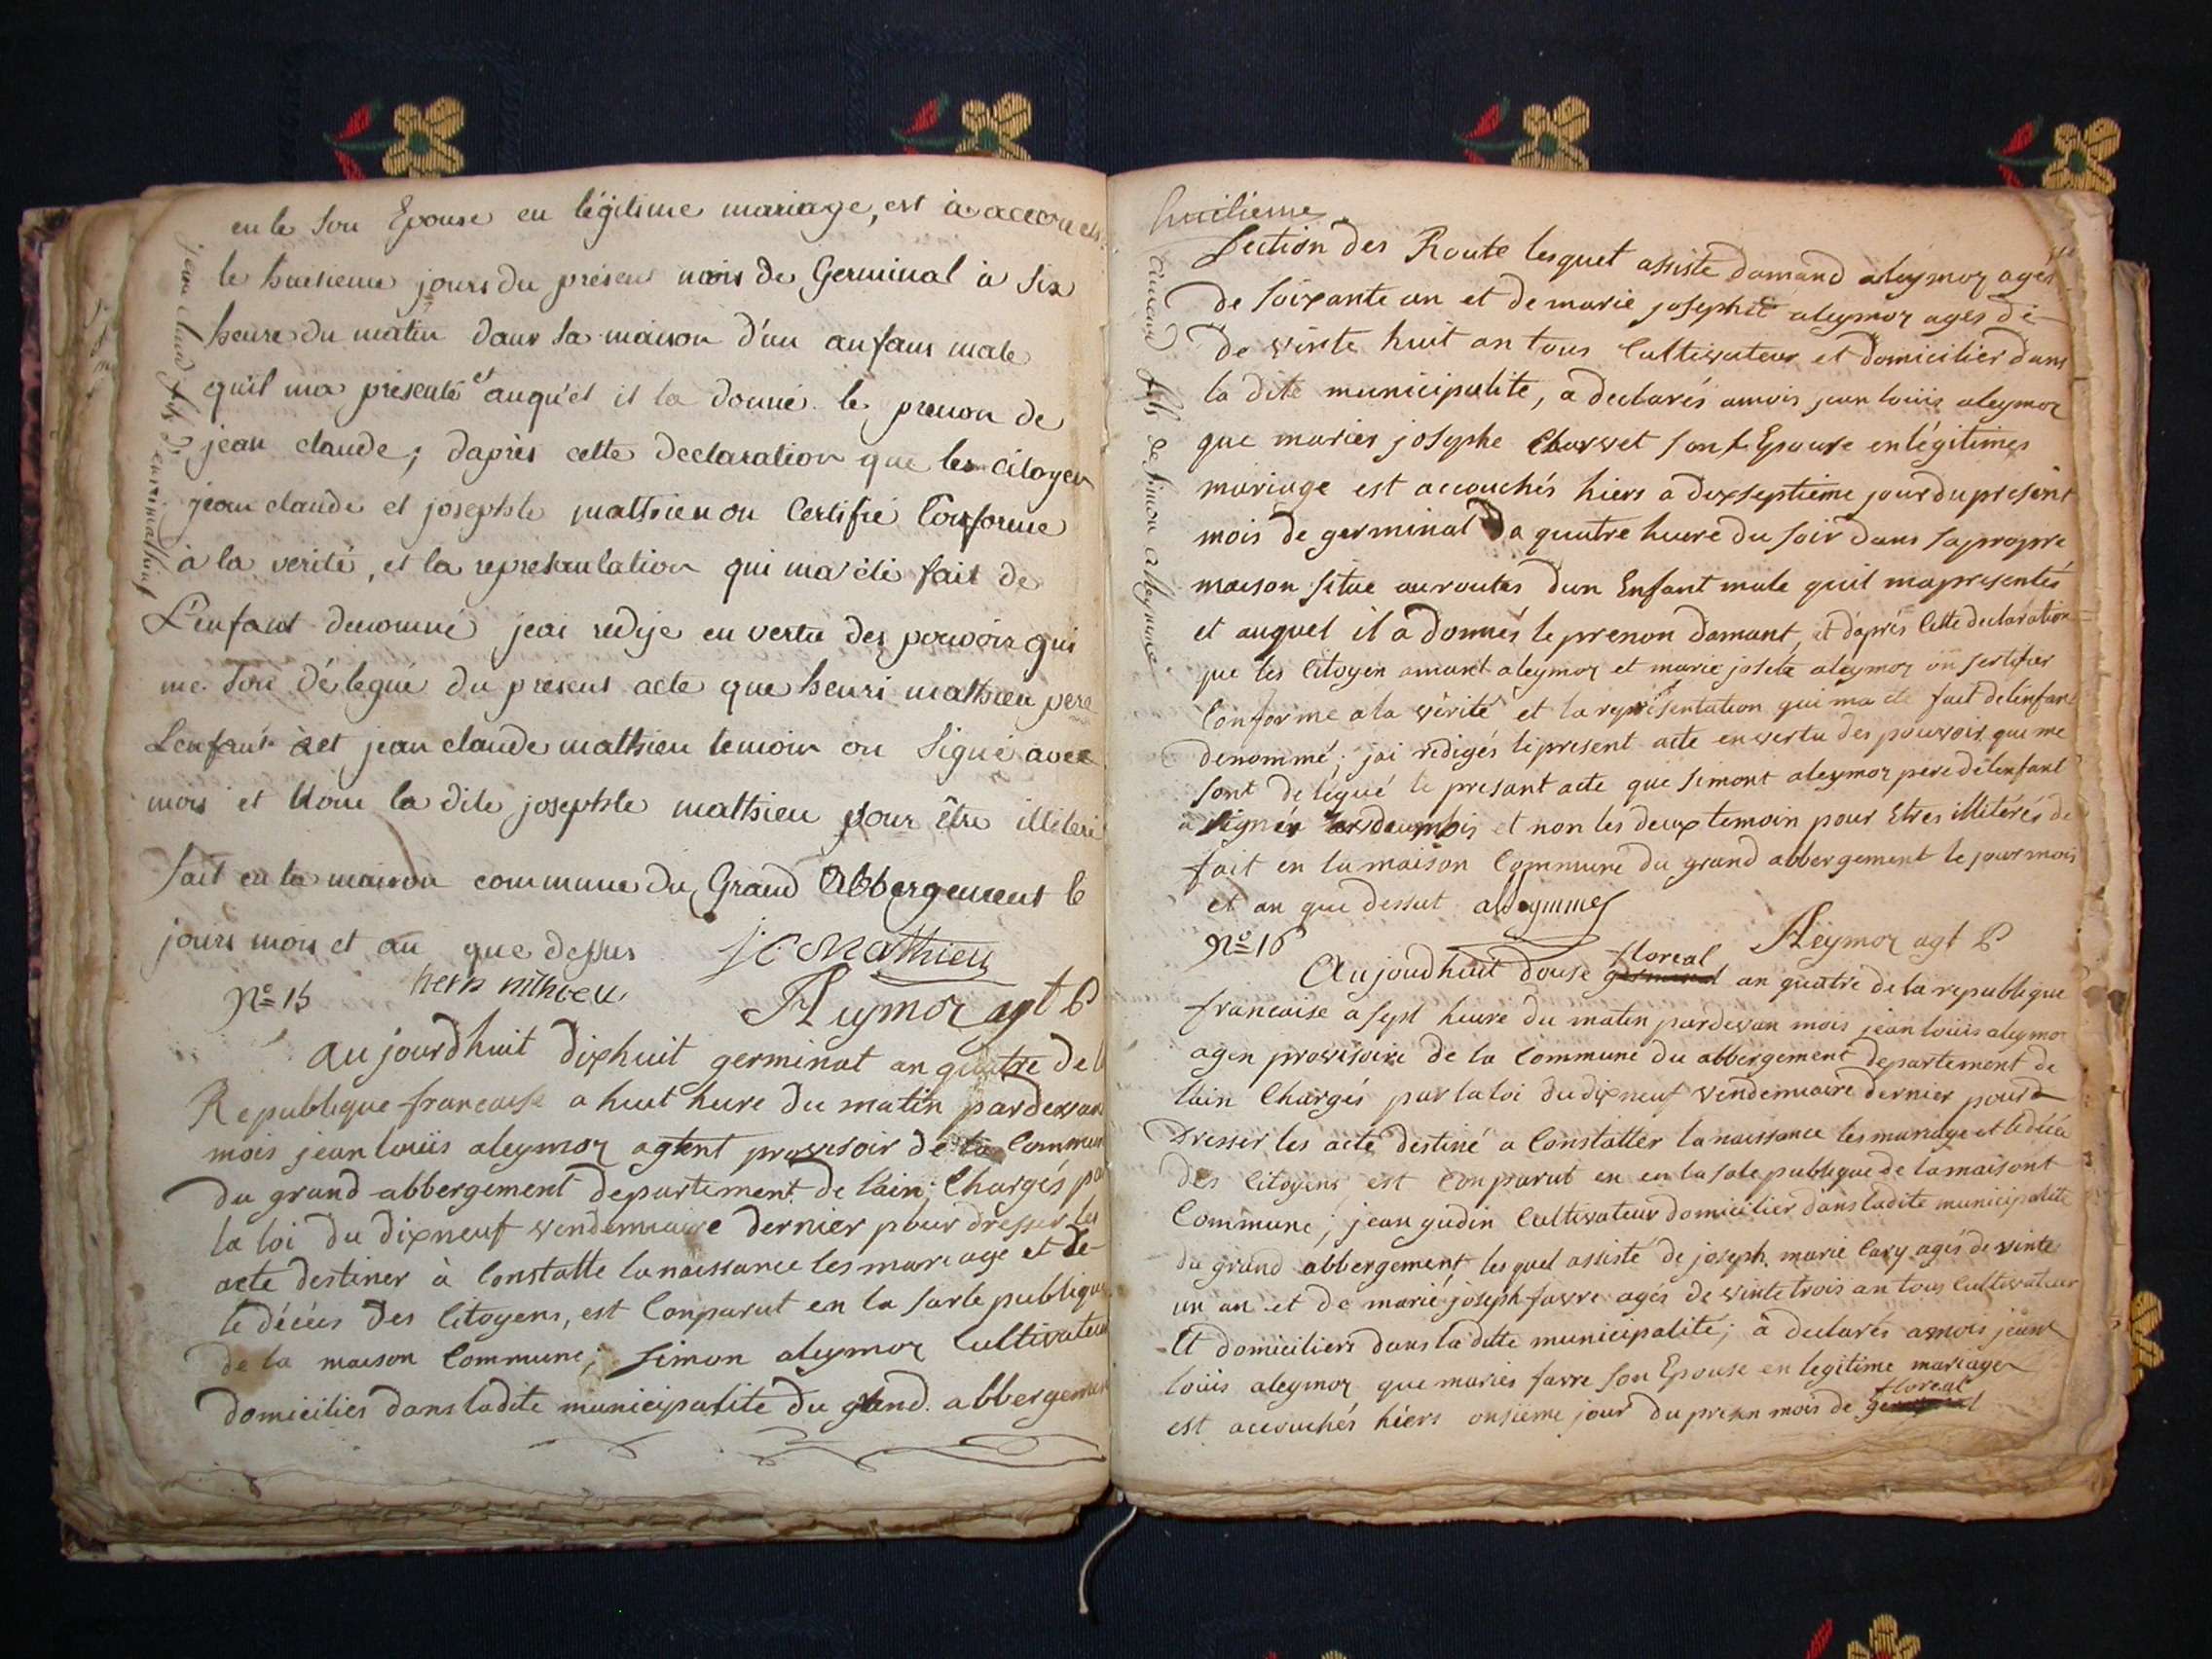 en le son Epouse en légitime mariage, est à accouchés
le huitieme jours du présent mois de Germinal à six
heure du matin dans sa maison d'un anfans male
qu'il ma présenté et auqu'el il la donné le prenon de
jean claude; daprès cette declaration que les citoyen
jean claude et josephte mathieu on Certifié Conforme
à la verité, et la represantation qui ma été fait de
L'enfant denommé jeai redije en vertu des pouvoir qui
me son délegué du present acte que henri mathieu pere
Lenfant à et jean claude mathieu temoin on Signé avec
moi et Non la dite josephte mathieu pour être illiteré
fait en la maison commune du Grand Abbergement le
jours mois et an que dessus J C Mathieu
Aleymoz agt P
jean claud fils de henri mathieu
No 15
aujourdhuit dixhuit germinal an quatre de la
Republique francaise a huit hure du matin pardevant
mois jean louiis aleymoz agtent provisoir de la Commun
du grand abbergement departement de lain; Chargés par
la loi du dixneuf vendemiaire dernier pour dresser les
acte destiner à Constatte la naissance les mariage et de
le décées des Citoyens, est Conparut en la sale publique
de la maison Commune; simon aleymoz Cultivateur
domiciliés dans ladite municipalité du grand abbergement
huitieme
Section des Route lesquet assiste damand aleymoz agés
de soixante un et de marie josephte aleymoz agés de
de vinte huit an tous Cultivateur et domicilier dans
la dite municipalite, a declarés amois jean louiis aleymoz
que maries josephe Charvet sont Epouse en légitimes
mariage est accouchés hiers a dixseptieme jour du present
mois de germinal a quatre heure du soir dans sa propre
maison situe au routes dun Enfant male quil ma presentés
et auquel il a donnés le prenon damant, et daprés Cette declaration
que les Citoyen amant aleymoz et marie josete aleymoz on sertifier
Conforme a la vérité et la représentation qui ma été fait de lenfant
denommé; jai redigés le present acte en vertu des pouvoir que me
sont delégué le presant acte que simont aleymoz pere de lenfant
a signér et non les deux temoin pour Etres illiterés de
fait en la maison Commune du grand abbergement le jour mois
et an que dessut
Aleymoz agt P
fils de simon alleymoz
No 16
Aujoudhuit douse germinal floreal an quatre de la republique
francaise a sept heure du matin pardevan mois jean louiis aleymoz
agen provisoire de la Commune du abbergement departement de
lain Chargés par la loi du dixneuf vendemiaire dernier pour
Dresser les acte destiné a Constatter la naissance les mariage et le décée
des Citoyens est Conparut en en la sale publique de la maisont
Commune; jean gudin Cultivateur domicilier dans ladite municipalite
du grand abbergement les quel assisté de joseph marie Cary agés de vinte
un an et de marie joseph favre agés de vinte trois an tous Cultivateur
Et domiciliers dans la ditte municipalité; à declarés amois jeant
louiis aleymoz que maries favre son Epouse en legitime mariage
est accouchés hiers onsieme jour du presen mois de germinal floreal